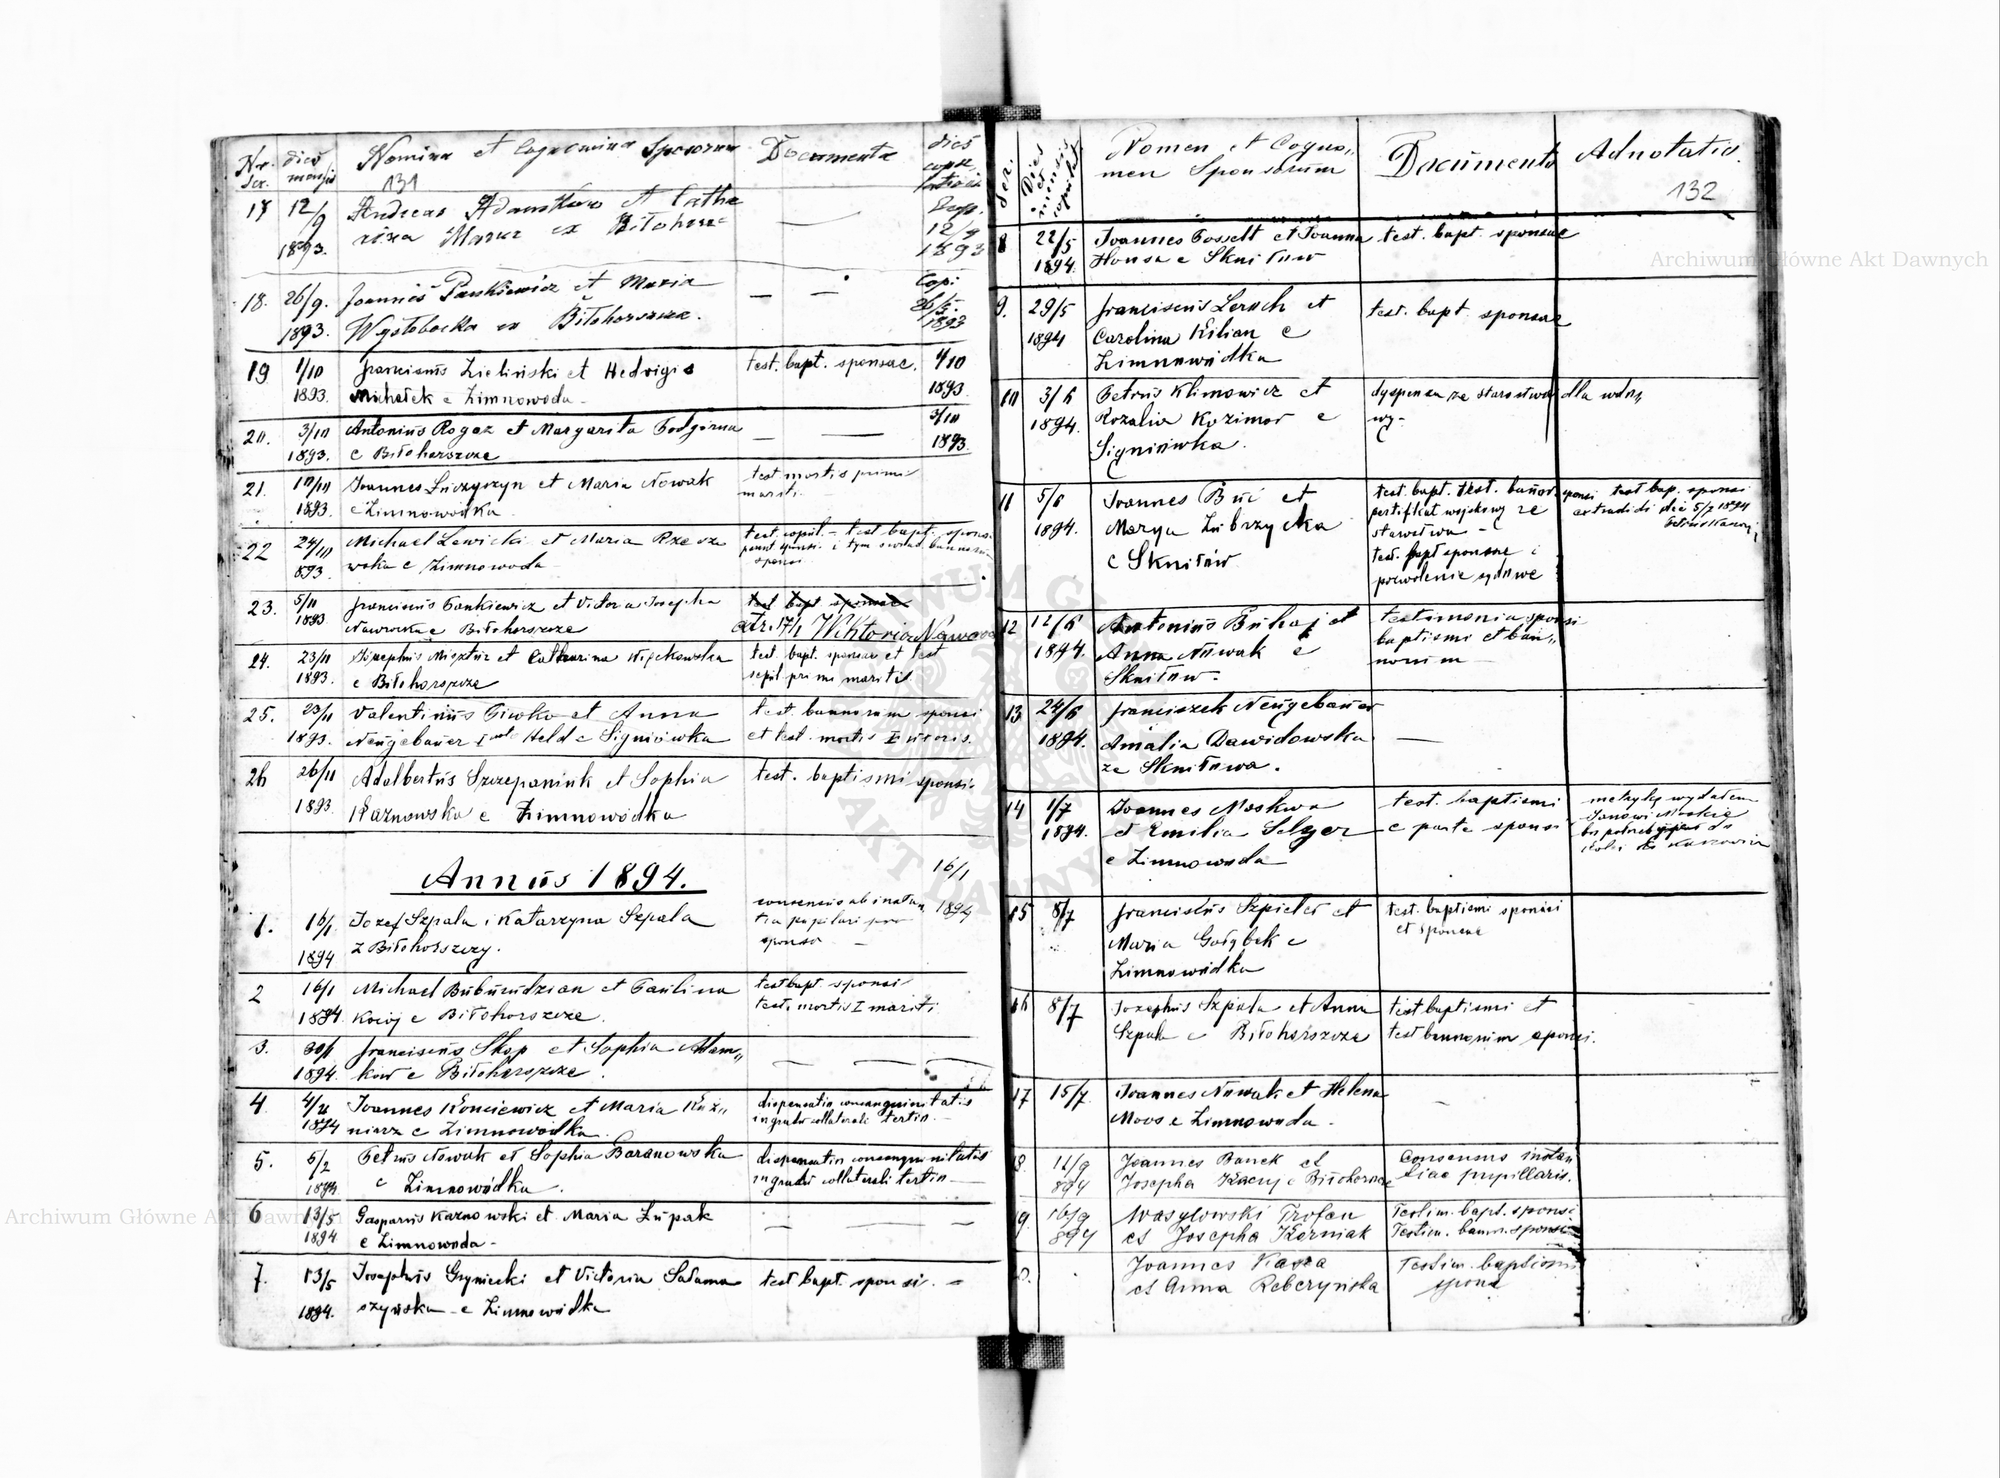 Nr. Ser.
dies mensis
Nomina et Cognomina Sponsorum
Documenta
dies copulationis
131
17 12/9 Andreas et Catha
rina Mazur ex Biłohorszcze 12/9
1893. 1893
18. 26/9. Joannes Pankiewicz et Maria — — Cop:
1893. Wysłobocka ex Biłohorszcze. 1893
19 1/10 Franciscus Zieliński et Hedvigis test. bapt. sponsae. 1/10
1893. Michałek e Zimnowoda 1893.
20. 3/10 Antonius Rogoz et Margarita Podgórna — — 3/10
1893. e Biłohorszcze 1893.
21. 10/10 Joannes Łuczyszyn et Maria Nowak test mortis primi
1893. e Zimnowódka mariti.
22 24/10 Michael Lewicki et Maria test. copul. - test bapt. sponsi
893. wska e Zimnowoda
23. 5/11 Franciscus Pankiewicz et Victoria Josepha test bapt sponsae
1893 Nawrocka e Biłohorszcze str. 171 Wiktoria Nawro
24. 23/11 Josephus et Catharina Więckowska test. bapt. sponsae et test
1893. e Biłohorszcze sepul primi mariti
25. 23/11 Valentinus Piwko et Anna test. bannorum sponsi
1893. Neugebauer Held e Signiówka et test. mortis I uxoris.
26 26/11 Adalbertus Szczepaniuk et Sophia test. baptismi sponsi.
1893 Kaznowska e Zimnowódka
Annus 1894.
16/1
1. 16/1 Jozef Szpala i Katarzyna Szpala consensus ab instan 1894
1894 z Biłohorszczy. tia pupilari pro
sponso —
2 16/1 Michael et Paulina test bapt. sponsi
1894. e Biłohorszcze. test. mortis I mariti
3. 30/1 Franciscus Skop et Sophia Adam„ — — —
1894. ków e Biłohorszcze.
4. 4/2 Joannes Konciewicz et Maria Kuź„ dispensatio consanguinitatis
1894 niarz e Zimnowódka. in gradu collaterali tertio. —
5. 5/2 Petrus Nowak et Sophia Baranowska dispensatio consanguinitatis
1894 e Zimnowódka. in gradu collaterali tertio —
6 13/5 Gasparus Kaznowski et Maria Łupak — — —
1894 e Zimnowoda -
7. 13/5 Josephus Gryniecki et Victoria Salama test bapt. sponsi. -
1894. szyńska e Zimnowódka
Ser.
Dies et mensis copulat.
Nomen et Cogno„
men Sponsorum
Documenta
Adnotatio.
132
8 22/5 Joannes Gossett et Joanna test. bapt. sponsae
1894. e Skniłow
9. 29/5 Franciscus Lerach et test. bapt sponsae
1894 Carolina Kilian e
Zimnowódka
10 3/6 Petrus Klimowicz et dyspensa ze starostwa dla wdo„
1894. Rozalia Kazimor e wy-
Signiówka.
11 5/6 Joannes Buć et test. bapt. test. bannor sponsi test bap. sponsi
1894. Marya Zubrzycka certifikat wojskowy ze extradidi die 5/7 1894
e Skniłów starostwa —
test. bapt sponsae i
pozwolenie sądowe
12 12/6 Antonius Buhaj et testimonia sponsi
1894. Anna Nowak e baptismi et ban„
Skniłow. norum —
13 24/6 Franciszek Neugebauer
1894. Amalia Dawidowska —
ze Skniłowa.
14 1/7 Joannes Moskwa test. baptismi metrykę wydałem
1894. et Emilia Selzer e parte sponsi
e Zimnowoda
15 8/7 Franciscus Szpieler et test. baptismi sponsi
Maria Gołąbek e et sponsae
Zimnowódka
16 8/7 Jozephus Szpala et Anna test baptismi et
Szpala e Biłohorszcze test bannorum sponsi.
17 15/7 Joannes Nowak et Helena —
Moos e Zimnowoda.
18. 11/9 Joannes Banek et Consensus instan
894 Josepha e Biłohorszcze tiae pupillaris.
19. 16/9 Wasylowski Trofen Testim. bapt. sponsi
894 et Josepha Korniak Testim. bann. sponsi
Joannes Kasza Testim. baptismi
et Anna Reberzyńska
Archiwum Główne Akt Dawnych
Archiwum Główne Akt Dawnych